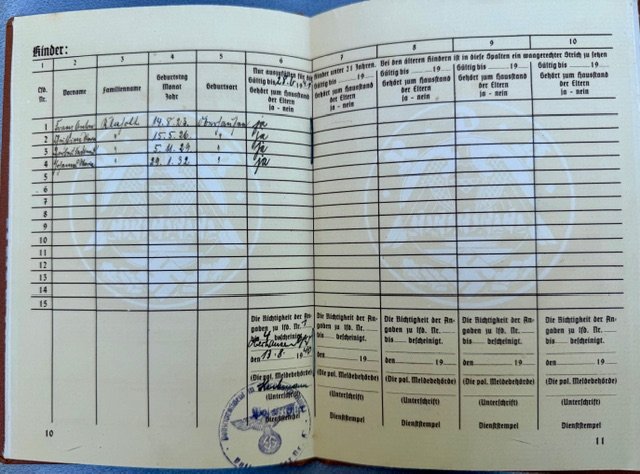 Kinder:
1 2 3 4 5 6 7 8 9 10
Nur auszufüllen für die Kinder unter 21 Jahren. Bei den älteren Kindern ist in diese Spalten ein waagerechter Strich zu setzen
Lfd. Nr. Vorname Familienname Geburtstag Monat Jahr Geburtsort
Gültig bis 19
Gehört zum Hausstand der Eltern ja - nein
Gültig bis 19
Gehört zum Hausstand der Eltern ja - nein
Gültig bis 19
Gehört zum Hausstand der Eltern ja - nein
Gültig bis 19
Gehört zum Hausstand der Eltern ja - nein
Gültig bis 19
Gehört zum Hausstand der Eltern ja - nein
1 14.8.23. ja
2 " 15.5.26. " ja
3 " 5.11.29 " ja
4 " 29.1.32 " ja
5
6
7
8
9
10
11
12
13
14
15
Die Richtigkeit der Angaben zu lfd. Nr. 1
bis 4 bescheinigt.
den 13.8. 1940
(Die pol. Meldebehörde)
(Unterschrift)
Dienststempel
Die Richtigkeit der Angaben zu lfd. Nr.
bis bescheinigt.
den 19
(Die pol. Meldebehörde)
(Unterschrift)
Dienststempel
Die Richtigkeit der Angaben zu lfd. Nr.
bis bescheinigt.
den 19
(Die pol. Meldebehörde)
(Unterschrift)
Dienststempel
Die Richtigkeit der Angaben zu lfd. Nr.
bis bescheinigt.
den 19
(Die pol. Meldebehörde)
(Unterschrift)
Dienststempel
Die Richtigkeit der Angaben zu lfd. Nr.
bis bescheinigt.
den 19
(Die pol. Meldebehörde)
(Unterschrift)
Dienststempel
10
11